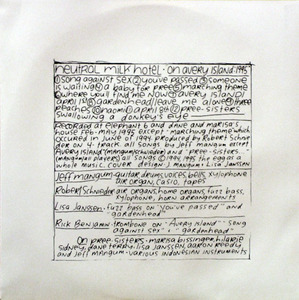 neutral milk hotel · on avery island · 1995
①song against sex②you've passed③someone
is waiting④a baby for pree⑤marching theme
⑥where you'll find me now⑦avery island
april 1st⑧gardenhead/leave me alone⑨three
peaches⑩naomi⑪april 8th⑫pree-sisters
swallowing a donkey's eye
recorded at elephant 6 and dane and marisa's
house feb-may 1995 except "marching theme" which
occurred in june of 1994 produced by robert schnei
der on 4-track. all songs by jeff mangum except
avery island (mangum/schneider) and pree-sisters
(mangum + players) all songs © 1994, 1995 the eggs of a
whole music. cover design: mangum + lisa janssen
Jeff mangum · guitar drums voices bells, xylophone
air organ, casio, tapes
Robert Schneider air organs, home organs, fuzz bass,
xylophone, horn arrangements
Lisa Janssen · fuzz bass on "you've passed" and
gardenhead"
Rick Benjamin trombone on "Avery Island" "song
against sex" + "gardenhead"
On pree-sisters · marisa bissinger, hilarie
sidney, dane terry, lisa janssen, aaron reedy
and jeff mangum · various indonesian instruments